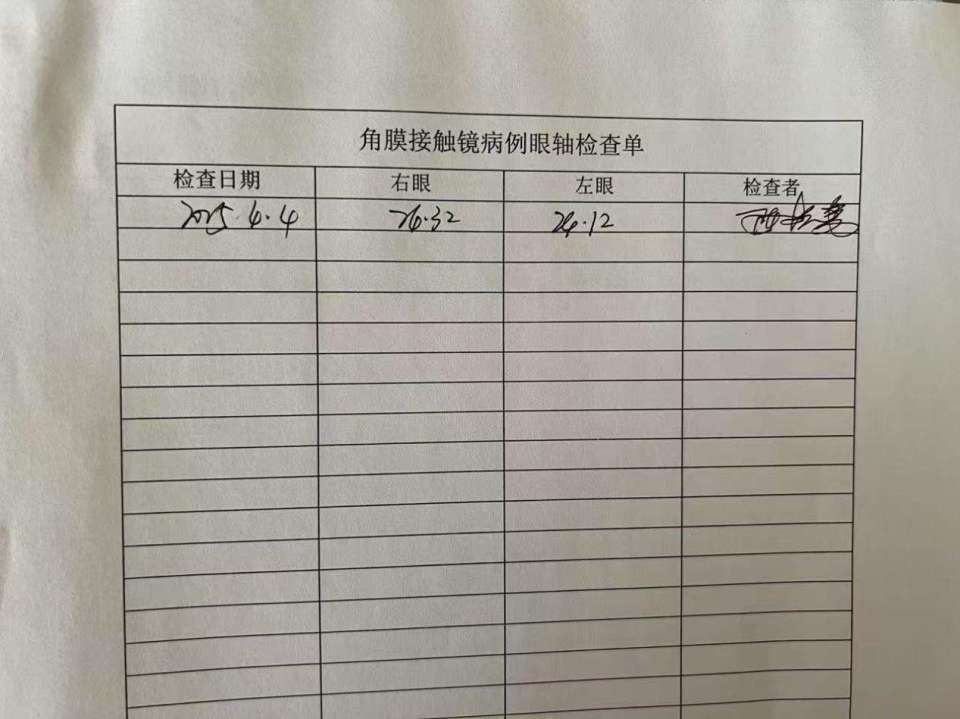 角膜接触镜病例眼轴检查单
检查日期 右眼 左眼 检查者
2025.4.4 26.32 26.12